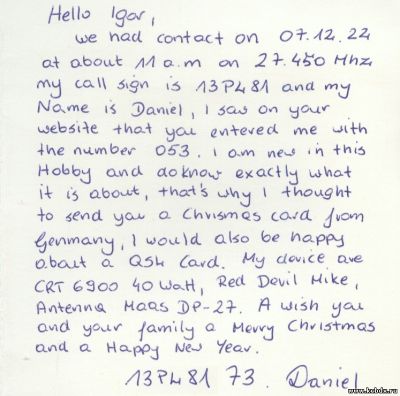 Hello Igor,
we had contact on 07.12.22
at about 11 a.m on 27.450 Mhz,
my call sign is 13PL481 and my
Name is Daniel, I saw on your
website that you entered me with
the number 053. I am new in this
Hobby and do know exactly what
it is about, that's why I thought
to send you a Chrismas card from
Germany, I would also be happy
about a QSL Card. My device are
CRT 6900 40 Watt, Red Devil Mike,
Antenna Maas DP-27. A wish you
and your family a Merry Christmas
and a Happy New Year.
13PL481 73. Daniel
www.kubds.ru